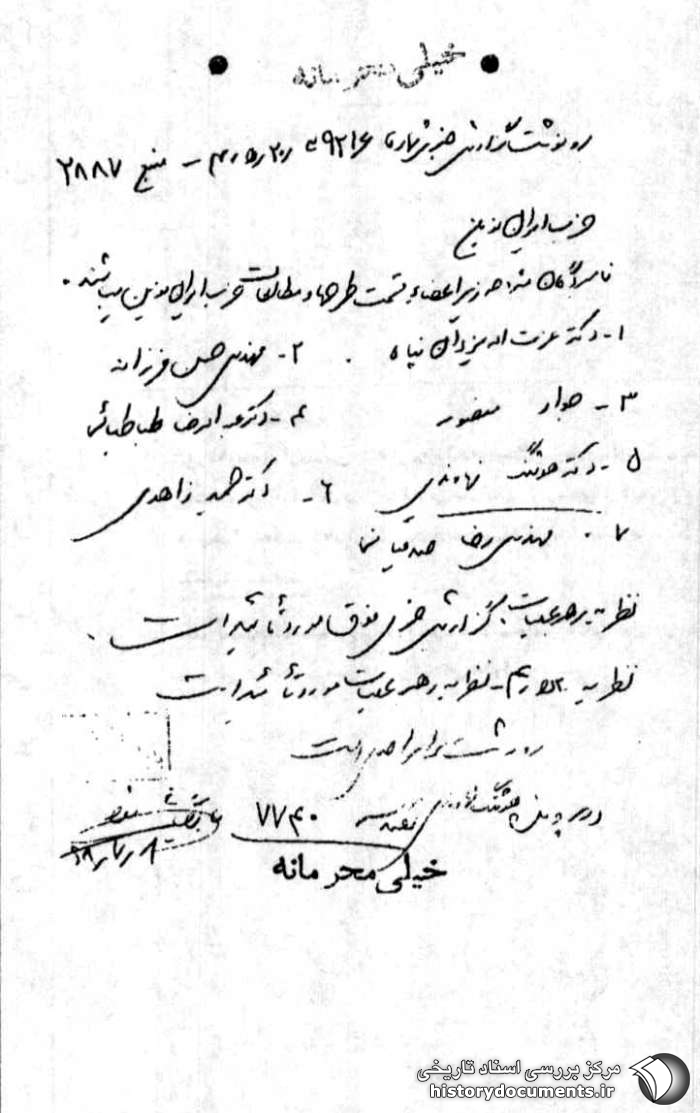 خیلی محرمانه
رونوشت گزارش خبر شماره - منبع ۲۸۸۷
حزب ایران نوین
نامبردگان مشروحه زیر اعضاء قسمت طرحها و مطالعات حزب ایران نوین میباشند.
۱- دکتر عزت اله یزدان پناه ۲- مهندس حسن فرزانه
۳- جواد منصور ۴- دکتر عبدالرضا طباطبائی
۵- دکتر هوشنگ نهاوندی ۶- دکتر زاهدی
۷- مهندس رضا صدقیانی
نظریه رهبر عملیات: گزارش خبر فوق مورد تأئید است.
نظریه - نظریه رهبر عملیات مورد تأئید است
رونوشت برابر اصل است
در پرونده هوشنگ نهاوندی ۷۷۴۰
خیلی محرمانه
مرکز بررسی اسناد تاریخی
historydocuments.ir